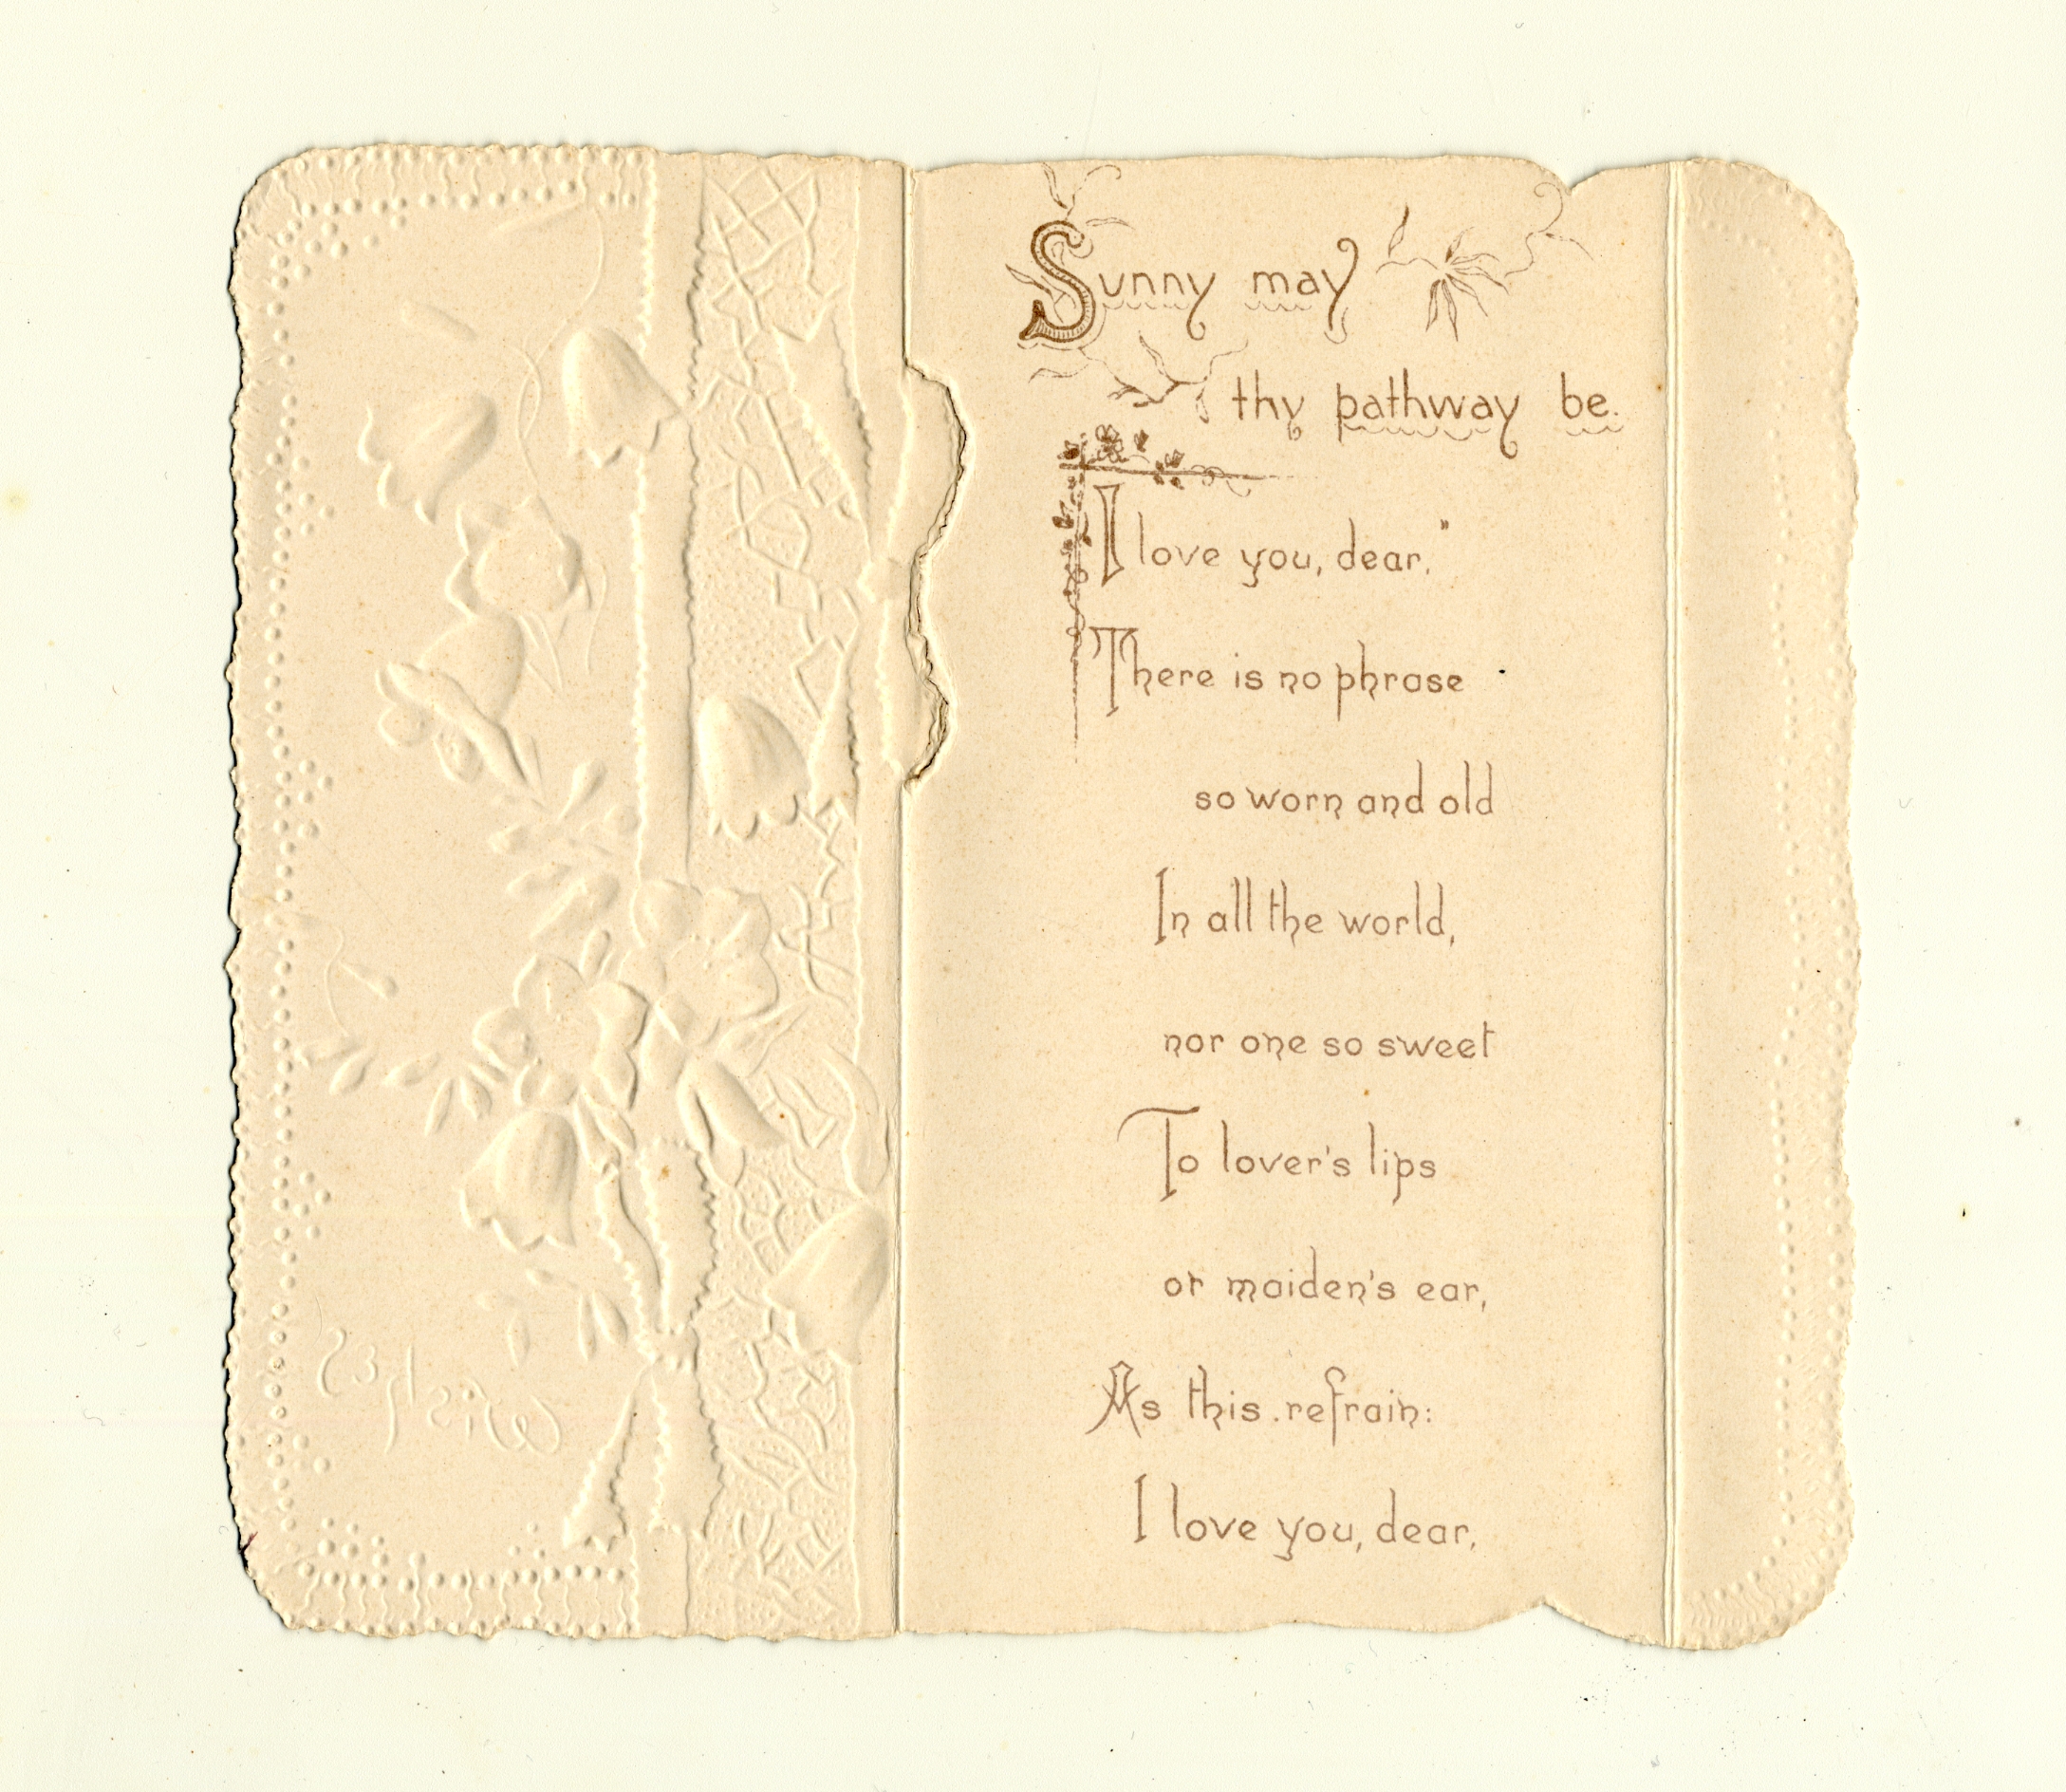 Wishes
Sunny may
thy pathway be.
I love you, dear."
There is no phrase
so worn and old
In all the world,
nor one so sweet
To lover's lips
or maiden's ear,
As this refrain:
I love you, dear.